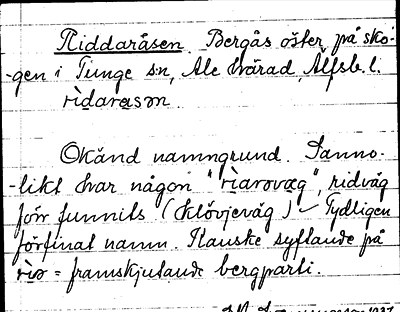 Riddaråsen. Bergås öster på sko-
-gen i Tunge sn, Ale härad, Älfsb. l.
rìdarasən.
Okänd namngrund. Sanno-
-likt har någon "rìarovæg", ridväg
förr funnits (Klövjeväg) Tydligen
förfinat namn. Kanske syftande på
= framskjutande bergparti.